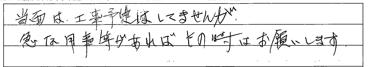 当面は、工事予定はしてませんが、
急な用事等があればその時はお願いします。